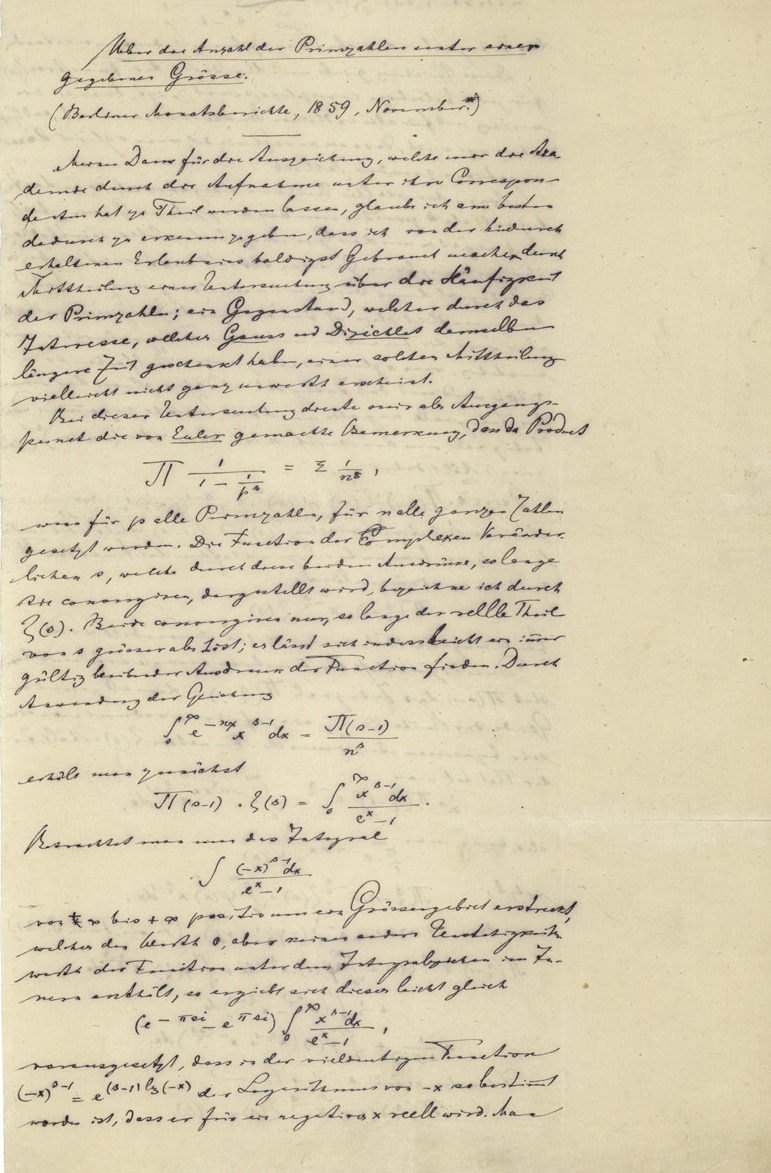 Ueber die Anzahl der Primzahlen unter einer
gegebenen Grösse.
(Berliner Monatsberichte, 1859, November.*)
Meinen Dank für die Auszeichnung, welche mir die Aka-
demie durch die Aufnahme unter ihre Correspon-
denten hat zu Theil werden lassen, glaube ich am besten
dadurch zu erkennen zu geben, dass ich von der hiedurch
erhaltenen Erlaubniss baldigst Gebrauch mache durch
Mittheilung einer Untersuchung über die Häufigkeit
der Primzahlen; ein Gegenstand, welcher durch das
Interesse, welches Gauss und Dirichlet demselben
längere Zeit geschenkt haben, einer solchen Mittheilung
vielleicht nicht ganz unwerth erscheint.
Bei dieser Untersuchung diente mir als Ausgangs-
punct die von Euler gemachte Bemerkung, dass das Product
∏ 1/(1 − 1/p^s) = Σ 1/n^s,
wenn für p alle Primzahlen, für n alle ganzen Zahlen
gesetzt werden. Die Function der Complexen Veränder-
lichen s, welche durch diese beiden Ausdrücke, so lange
sie convergiren, dargestellt wird, bezeichne ich durch
ζ(s). Beide convergiren nur, so lange der reelle Theil
von s grösser als 1 ist; es lässt sich indess leicht ein immer
gültig bleibender Ausdruck der Function finden. Durch
Anwendung der Gleichung
∫_0^∞ e^{−nx} x^{s−1} dx = ∏(s−1)/n^s
erhält man zunächst
∏(s−1) . ζ(s) = ∫_0^∞ x^{s−1}dx/(e^x−1).
Betrachtet man nun das Integral
∫ (−x)^{s−1}dx/(e^x−1)
von + ∞ bis + ∞ positiv um ein Grössengebiet erstreckt,
welches den Werth 0, aber keinen andern Unstetigkeits-
werth der Function unter dem Integralzeichen im In-
nern enthält, so ergiebt sich dieses leicht gleich
(e^{−πsi} − e^{πsi}) ∫_0^∞ x^{s−1}dx/(e^x−1),
vorausgesetzt, dass in der vieldeutigen Function
(−x)^{s−1} = e^{(s−1) lg(−x)} der Logarithmus von −x so bestimmt
worden ist, dass er für ein negatives x reell wird. Man